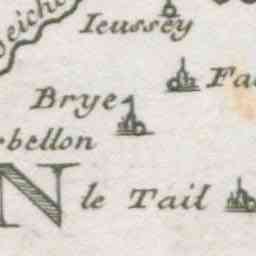 Seiche
Ieussey
Fa
Brye
ebellon
N
le Tail